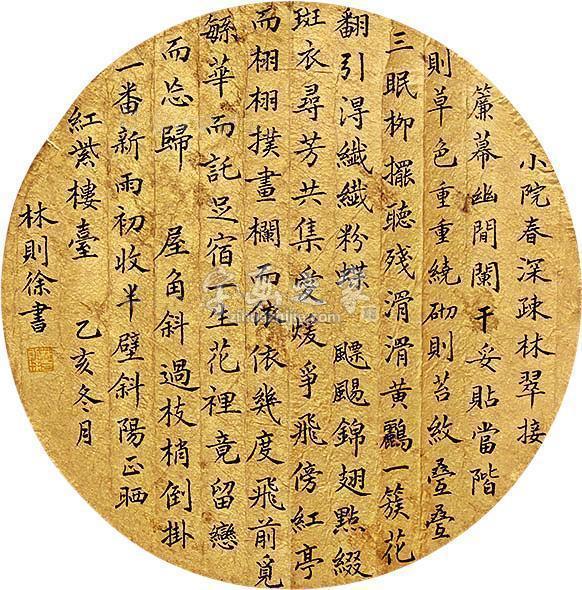 小院春深疎林翠接
簾幕幽閒闌干妥貼當階
則草色重重繞砌則苔紋疊疊
三眠柳擺聽殘滑滑黃鸝一簇花
翻引得纖纖粉蝶 飃颺錦翅點綴
斑衣尋芳共集愛煖爭飛傍紅亭
而栩栩撲畫欄而依依幾度飛前覓
緐華而託足宿一生花裡竟留戀
而忘歸 屋角斜過枝梢倒掛
一番新雨初收半壁斜陽正晒
紅紫樓臺 乙亥冬月
林則徐書